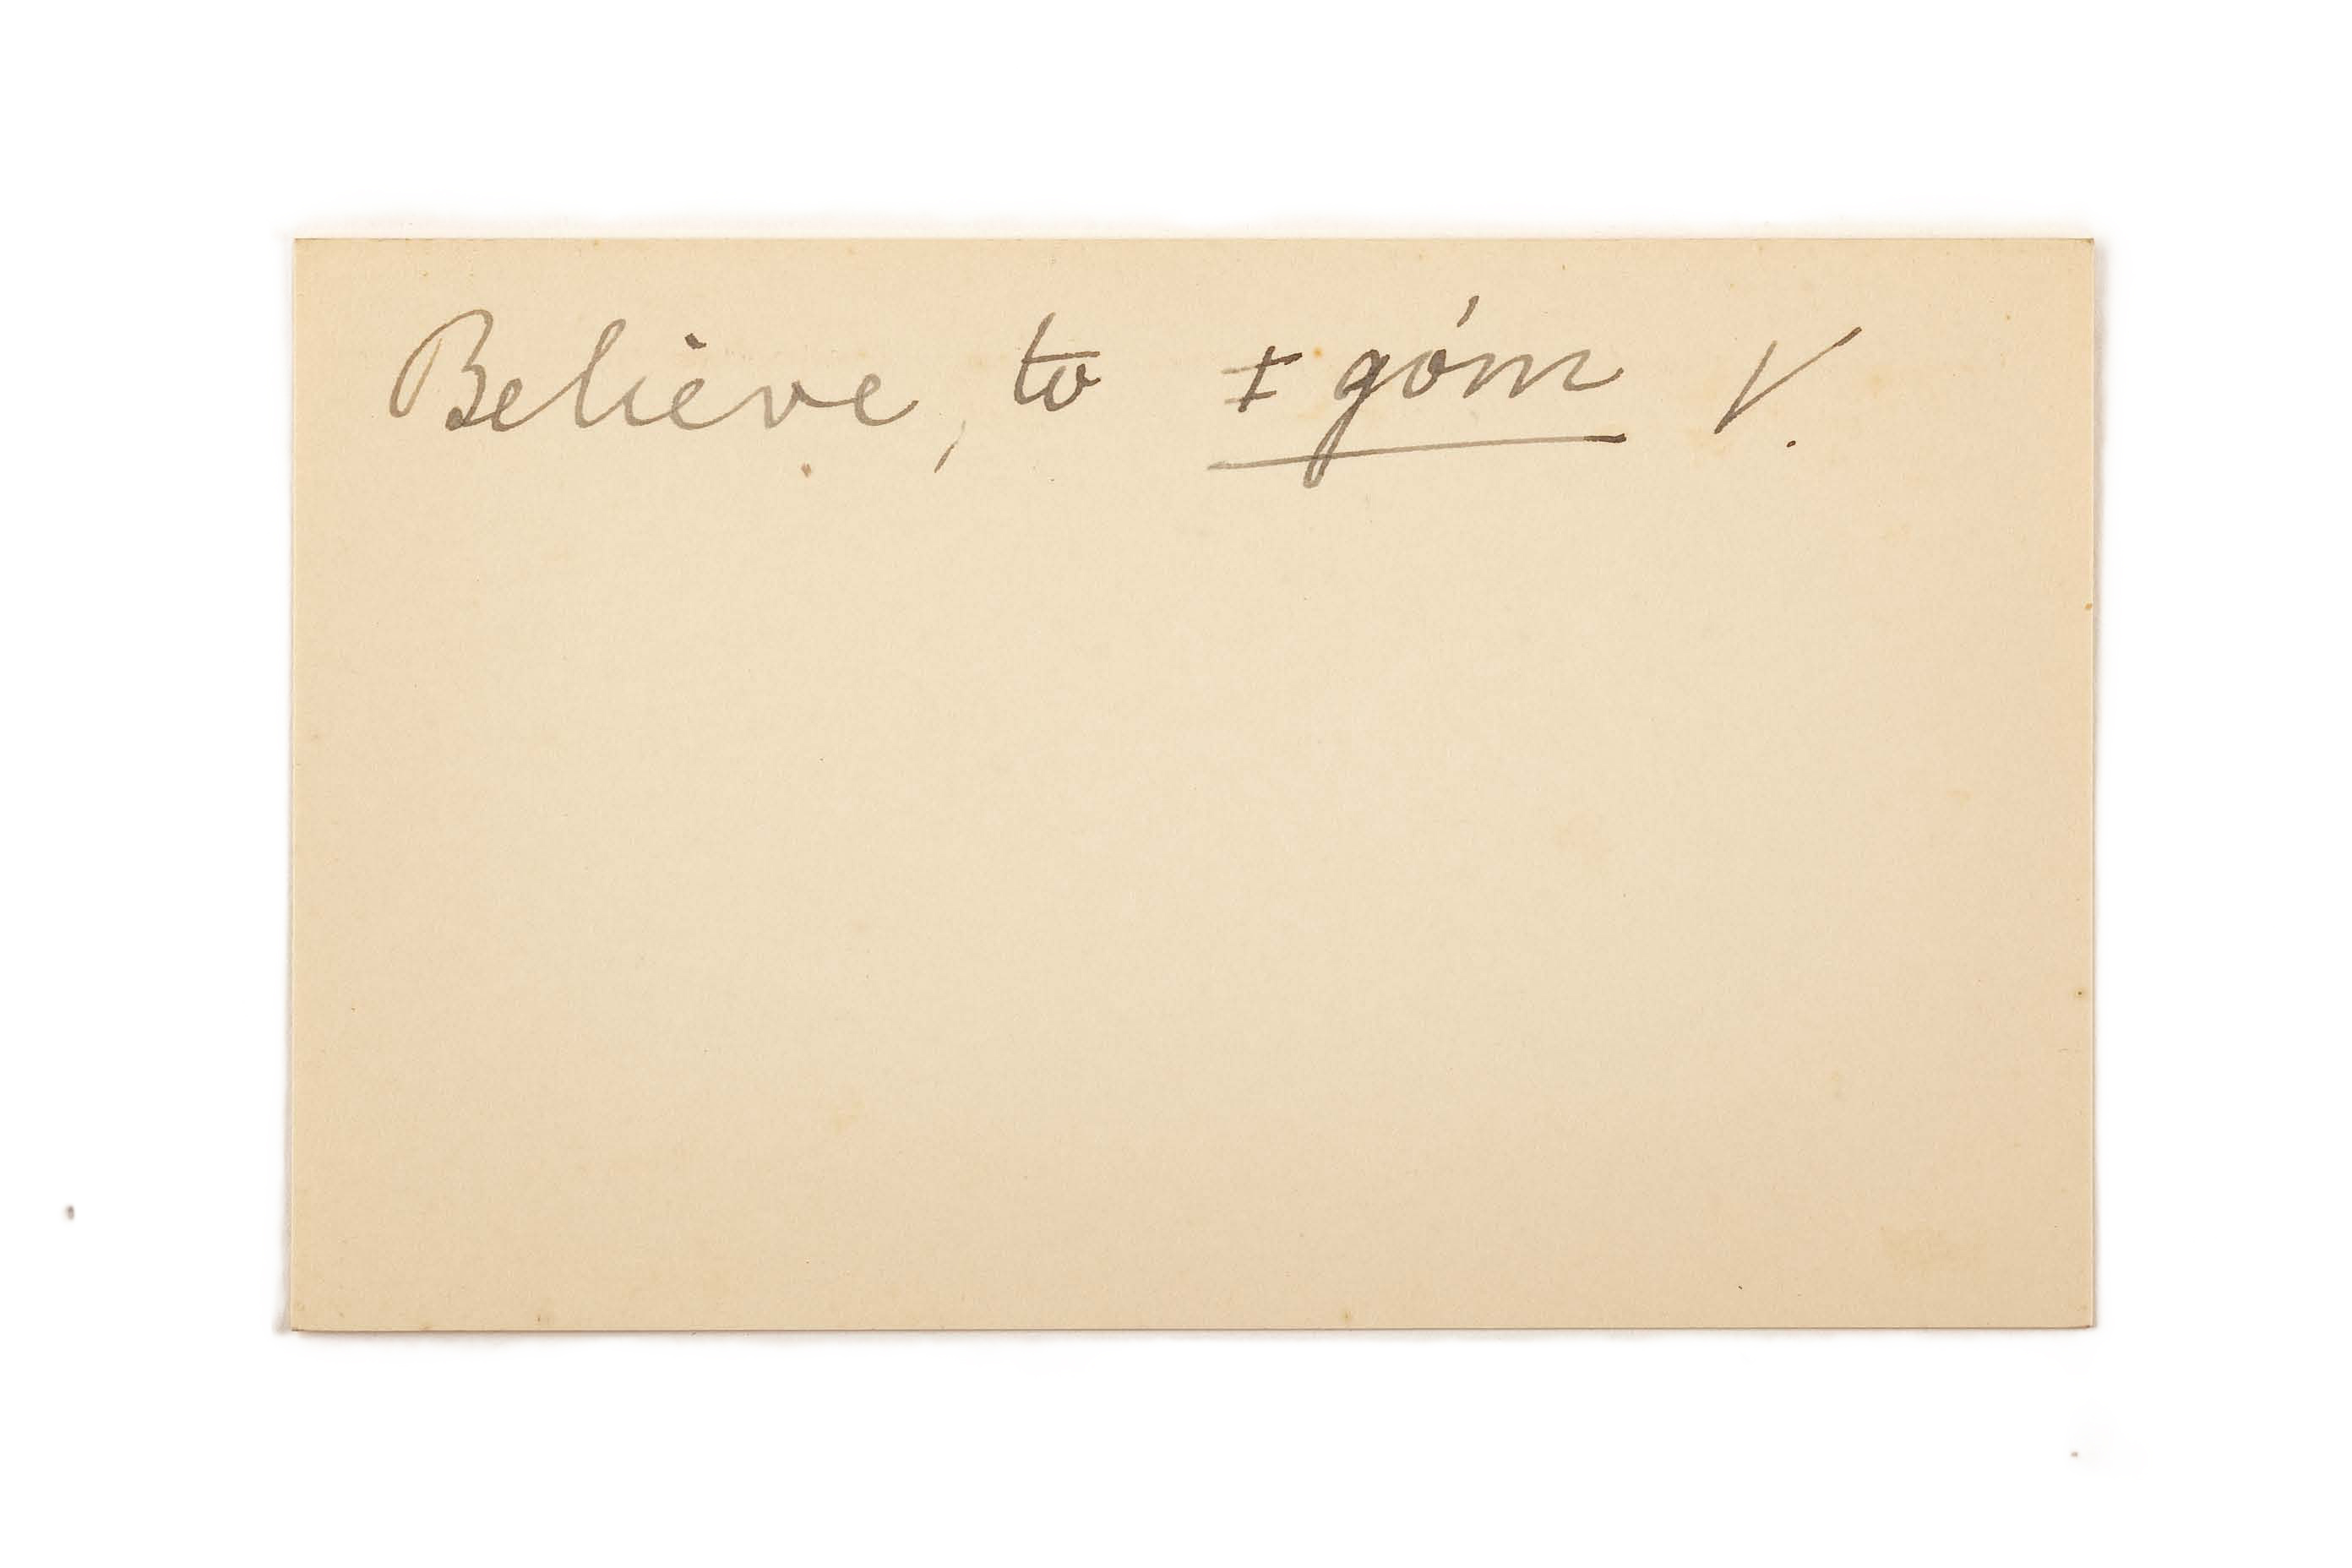 Believe, to ǂgóm V.